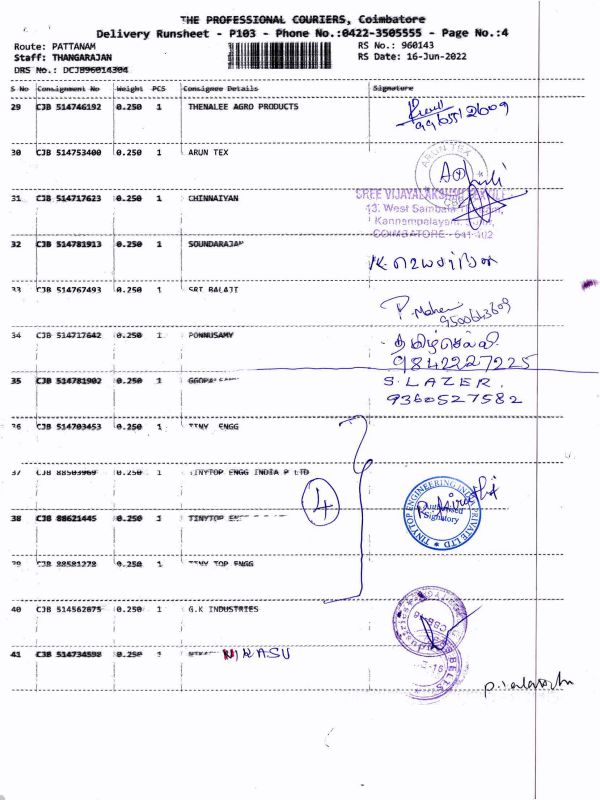 THE PROFESSIONAL COURIERS, Coimbatore
Delivery Runsheet - P103 - Phone No.:0422-3505555 - Page No.:4
Route: PATTANAM
RS No.: 960143
Staff: THANGARAJAN
RS Date: 16-Jun-2022
DRS No.: DCJB96014304
S No Consignment No Weight PCS Consignee Details Signature
29 CJB 514746192 0.250 1 THENALEE AGRO PRODUCTS
30 CJB 514753400 0.250 1 ARUN TEX
ARUN TEX
31 CJB 514717623 0.250 1 CHINNAIYAN
SREE VIJAYALAKSHMI
43, West
Kannampalayam
COIMBATORE - 641 402
32 CJB 514781913 0.250 1 SOUNDARAJAN
33 CJB 514767493 0.250 1 SRI BALAJI
9500643609
34 CJB 514717642 0.250 1 PONNUSAMY
தமிழ்செல்வி
9842227225
35 CJB 514781902 0.250 1
S. LAZER.
9360527582
36 CJB 514703453 0.250 1 TINY ENGG
37 CJB 88503969 0.250 1 TINYTOP ENGG INDIA P LTD
4
TINYTOP ENGINEERING INDIA PRIVATE LTD
Authorised
Signatory
38 CJB 88621445 0.250 1 TINYTOP
39 CJB 88581278 0.250 1 TINY TOP ENGG
40 CJB 514562875 0.250 1 G.K INDUSTRIES
41 CJB 514734598 0.250 1
BELTS